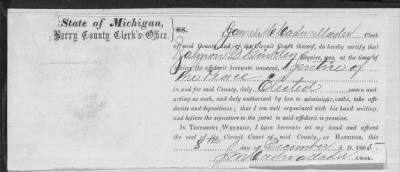 State of Michigan,
Barry County Clerk's Office,
ss.
James M. Cadwallader Clerk
of said County, and of the Circuit Court thereof, do hereby certify that
Esquire, was, at the time of
taking the affidavit hereunto annexed, a Justice of
the Peace
in and for said County, duly Elected sworn and
acting as such, and duly authorized by law to administer oaths, take affi-
davits and depositions; that I am well acquainted with his hand writing,
and believe the signature to the jurat to said affidavit is genuine.
In Testimony Whereof, I have hereunto set my hand and affixed
the seal of the Circuit Court of said County, at Hastings, this
8th day of December A. D. 1865.
J M Cadwallader Clerk.